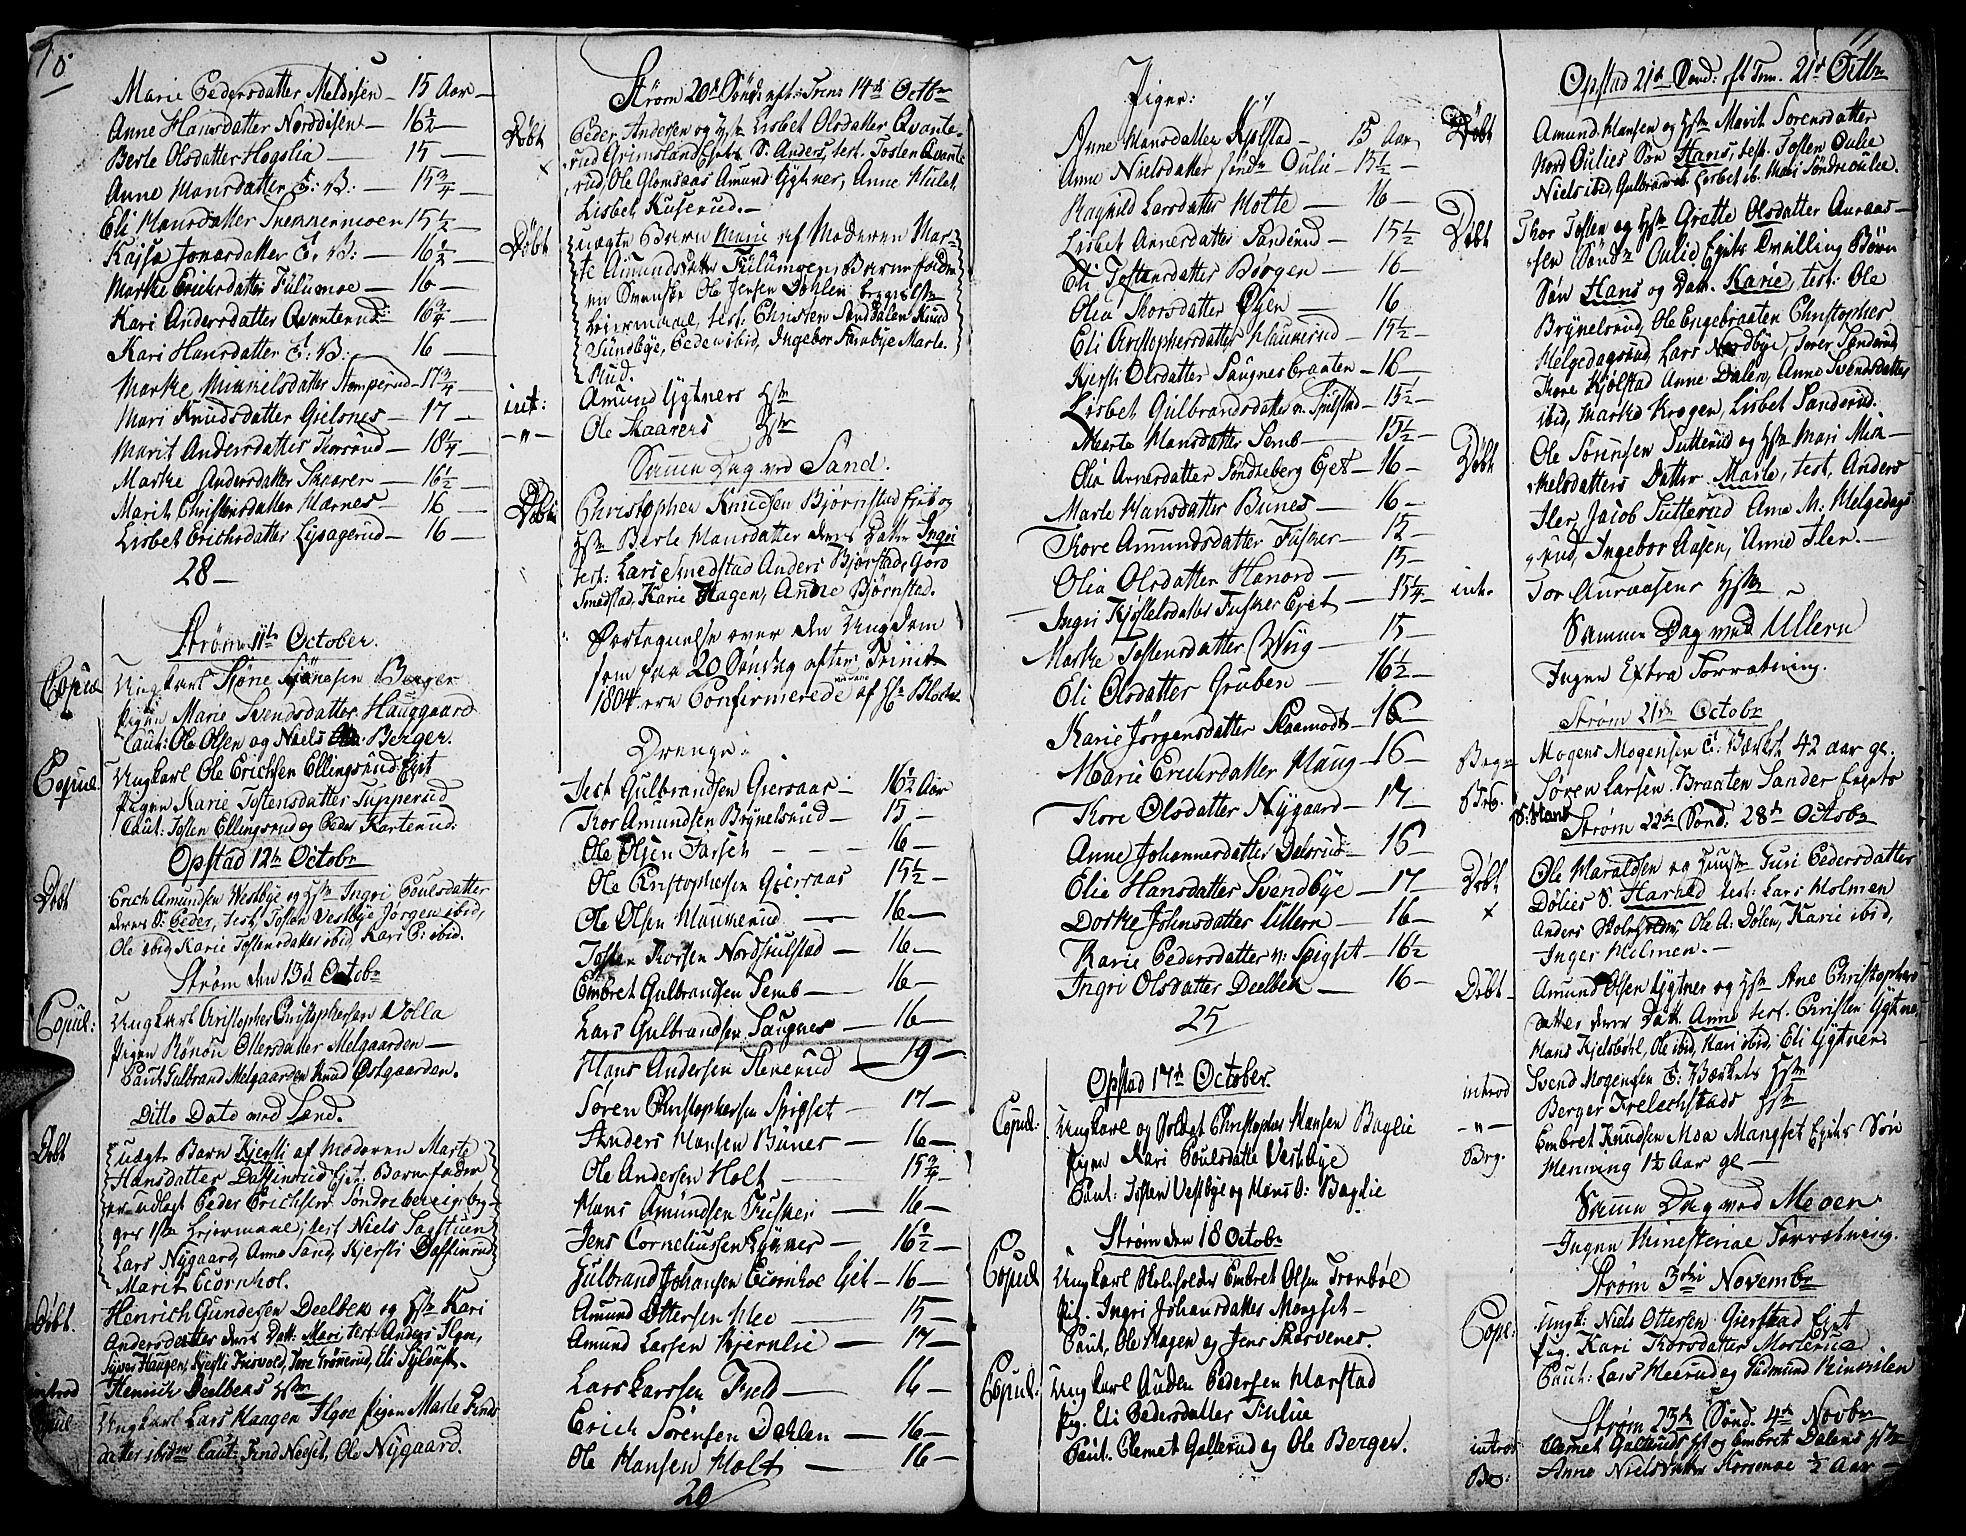 10
Marie Pedersdatter Meldisen — 15 Aar —
Anne Hansdatter Norddisen — 16½ —
Berle Olsdatter Hogslia — 15 —
Anne Hansdatter E: B: — 15¾ —
Eli Hansdatter Svennermoen 15½ —
Kajsa Jonasdatter E. B: — 16½ —
Marthe Erichsdatter Fulumoe — 16 —
Kari Andersdatter Qvanterud: 16¾ —
Kari Hansdatter E: B: — 16 —
Marthe Mikkelsdatter Stomperud — 17¾ —
Mari Knudsdatter Gielsnes — 17 —
Marit Andersdatter Korsrud — 18¼ —
Marthe Andersdatter Skarer — 16½ —
Marit Christensdatter Harnes — 16 —
Lisbet Erichsdatter Lysagerud — 16 —
28 —
Strøm 11te October.
Copul Ungkarl Tione Tiønesen Berger
Pigen Marie Svendsdatter Hauggaard
Caut: Ole Olsen og Niels Berger.
Copul. Ungkarl Ole Erichsen Ellingsrud Ejet
Pigen Karie Tostensdatter Tupperud
Caut: Tosten Ellingsrud og Peder Karterud.
Opstad 12te Octobr
Døbt Erich Amundsen Westbye og Hstr Ingri Poulsdatter
deres S: Peder, test. Tosten Vestbye Jørgen ibid,
Ole ibid Karie Tostensdatter ibid Kari P: ibid.
Strøm den 13de Octobr
Copul: Ungkarl Christopher Christophersen Volla
Pigen Rønou Ollersdatter Melgaarden —
Caut. Gulbrand Melgaarden Knud Østgaarden.
Ditto Dato med Sand.
Døbt uægte Barn Kjersti af Moderen Marte
Hansdatter Daffinrud Ejet. Barnefader
er udlagt Peder Erichsen Søndre bereigsby-
ges 1ste Leiermaal; test Niels Sagstuen
Lars Nygaard, Anne Sand, Kjersti Daffinrud
Marit Ecornhol.
Døbt. Henrich Gundersen Deelbek og Hstr Kari
Andersdatter deres Datt: Mari test. Anders Ilgoe,
Syver Haugen, Kjersti Frisvold, Tore Grønerud, Eli Sylvust.
introd Henrich Deelbeks Hstr
Copul Ungkarl Lars Haagen Ilgoe Pigen Marte Finds
datter ibidm Caut: Find Neeset, Ole Nygaard.
Strøm 20de Sønd: eft: Trin: 14de Octbr
Døbt Peder Andersen og Hstr Lisbet Olsdatter Qvante-
rud Grimslands Ejets S: Anders, test. Tosten Qvante
rud, Ole Glomsaas Amund Lygtner, Anne Mulet
Lisbet Kuserud. —
Døbt uægte Barn Marie af Moderen Mar-
te Amundsdatter Fulumoen, Barnefader
en Svenske Ole Jensen Dahlen begges 1ste
Leiermaal, test: Christen Sanddalen Knud
Sundbye, Peder ibid, Ingebor Farebye Marte
Rud.
int: Amund Lygtners Hstr
— " — Ole Skaarers Hstr
Samme Dag ved Sand.
Døbt Christopher Knudsen Bjørnstad Ejet og
Hstr Berle Hansdatter deres Datter Ingri
test: Lars Smedstad Anders Bjørstad, Goro
Smedstad, Karie Hagen, Anne Bjørnstad.
Fortegnelse over den Ungdom
som paa 20 Søndag after Trinit
1804. ere Confirmerede af Hr Bloch.
Drenge:
Test Gulbrandsen Giersaas — 16½ Aar
Thor Amundsen Brynelsrud — 15 —
Ole Olsen Farsen — 16 —
Ole Christophersen Gierraas 15½ —
Ole Olsen Maumerud — 16 —
Tosten Thorsen Nordsiulstad — 16 —
Embret Gulbrandsen Semb — 16 —
Lars Gulbrandsen Saugnes — 16 —
Hans Andersen Stenerud — 19 —
Søren Christophersen Spigset — 17 —
Anders Hansen Bunes — 16 —
Ole Andersen Holt — 15¾ —
Hans Amundsen Fusker — 16 —
Jens Corneliussen Lykner — 16½ —
Gulbrand Johansen Ecornhol Ejet — 16 —
Amund Ottersen Moe — 15 —
Amund Larsen Bjernlie — 17 —
Lars Larssen Fjeld — 16 —
Erich Sørensen Dahlen — 16 —
Ole Hansen Holt — 16 —
20
11
Piger:
Anne Hansdatter Kjølstad — 15 Aar
Anne Nielsdatter sondr Oulie — 15½ —
Ragnild Larsdatter Holte — 16 —
Lisbet Arnesdatter Sanderud — 15½
Eli Tostensdatter Børgen — 16 —
Olia Thorsdatter Øyen — 16
Eli Christophersdatter Maumerud — 15½ —
Kjersti Olsdatter Saugnesbraaten — 16 —
Lisbet Gulbrandsdatter n. Siulstad — 15½ —
Marte Hansdatter Semb — 15½ —
Olia Arnesdatter Søndreberg Ejet — 16 —
Marte Hansdatter Bunes — 16 —
Thore Amundsdatter Fusker — 15 —
Olia Olsdatter Hanord — 15 —
Ingri Kjøstelsdatter Fusker Ejet — 15¼ —
Marthe Tostensdatter Wiig — 15 —
Eli Olsdatter Gruben — 16½ —
Karie Jørgensdatter Skaamodt — 16 —
Marie Erichsdatter Haug — 16 —
Thore Olsdatter Nygaard — 17 —
Anne Johannesdatter Delsrud — 16 —
Elie Hansdatter Svendbye — 17 —
Dorthe Johnsdatter Ullern — 16 —
Karie Pedersdatter n: Spigset — 16½
Ingri Olsdatter Deelbek — 16 —
25
Opstad 17de October.
Copul: Ungkarl og Soldat Christopher Hansen Baglie
Pigen Kari Poulsdatte Vestbye
Caut: Tosten Vestbye og Hans O: Baglie
Strøm den 18 Octobr
Copul Ungkarl Skoleholder Embret Olsen Trønbøl
Pig. Ingri Johansdatter Mangset —
Caut. Ole Hagen og Jens Skarvenes.
Copul: Ungkarl Auden Pedersen Harstad
Pig. Eli Pedersdatter Fulue
Caut. Clemet Galterud og Ole Berger.
Opstad 21de Sønd: eft Trin. 21de Octbr
Døbt Amund Hansen og Hstr Marit Sørensdatter
Nord Oulies Søn Hans, test. Tosten Oulie
Niels ibid, Gulbrand ib. Lisbet ib. Mari Søndre Oulie.
Døbt Thor Tosten og Hstr Grette Olsdatter Auraas-
sen Søndr Oulie Ejets Tvilling Børn
Søn Hans og Dat. Karie, test: Ole
Brynelsrud, Ole Engebraaten Christopher
Helgedagsrud, Lars Nordbye, Sører Sanderud
Thore Kjølstad Anne Dalen, Anne Svendsdatter
ibid, Marthe Krogen, Lisbet Sanderud.
Døbt Ole Sørensen Sutterud og Hstr Mari Mik-
kelsdatters Datter Marte, test. Anders
Iler Jacob Sutterud Anne M: Helgedags
rud, Ingebor Aasen, Anne Iler. —
int. Tor Auraasens Hstr
Samme Dag med Ullern
Ingen Extra Forretning.
Strøm 21de Octobr
Begr Mogens Mogensen E: Værket 42 aar gl.
Søren Larsen Braaten Sander Ejets
S: Hans
Strøm 22de Sønd: 28de Octobr
Døbt Ole Haraldsen og Hustr Guri Pedersdatter
× Dølies S. Harald test: Lars Holmen
Anders Skoleholder, Ole A: Dølen, Karie ibid,
Inger Holmen. —
Døbt Amund Olsen Lygtner og Hstr Ane Christophers
datter deres Datt. Anne test. Christen Lygtne,
Hans Kjelsbøl, Ole ibid, Kari ibid, Eli Lygtner.
introd Svend Mogensen E: Værkets Hstr
— " — Berger Frelechstads Hstr
Brg. Embret Knudsen Moa Mangset Ejets Søn
Henning 1½ Aar gl —
Samme Dag ved Meoen
Ingen Ministeriae Forretning.
Strøm 3die Novembr
Copl: Ungk: Niels Ottersen Gierstad Ejet
Pig. Kari Thorsdatter Mosterud
Caut: Lars Meerud og Gudmund Kinnilen
Strøm 23de Sønd. 4de Novbr
introd Clemet Galteruds Hst og Embret Dalens Hstr
Be: Anne Nielsdatter Korsmoe ½ Aar —